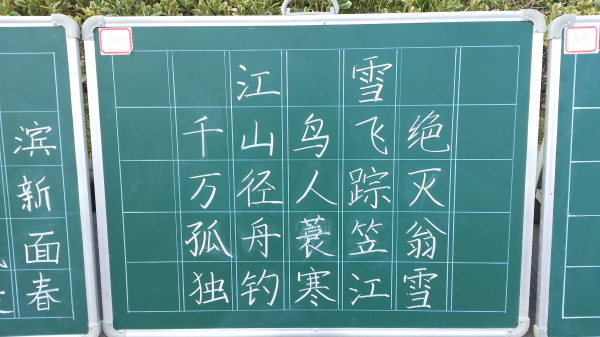 江雪
千山鸟飞绝
万径人踪灭
孤舟蓑笠翁
独钓寒江雪
滨
新
面
春